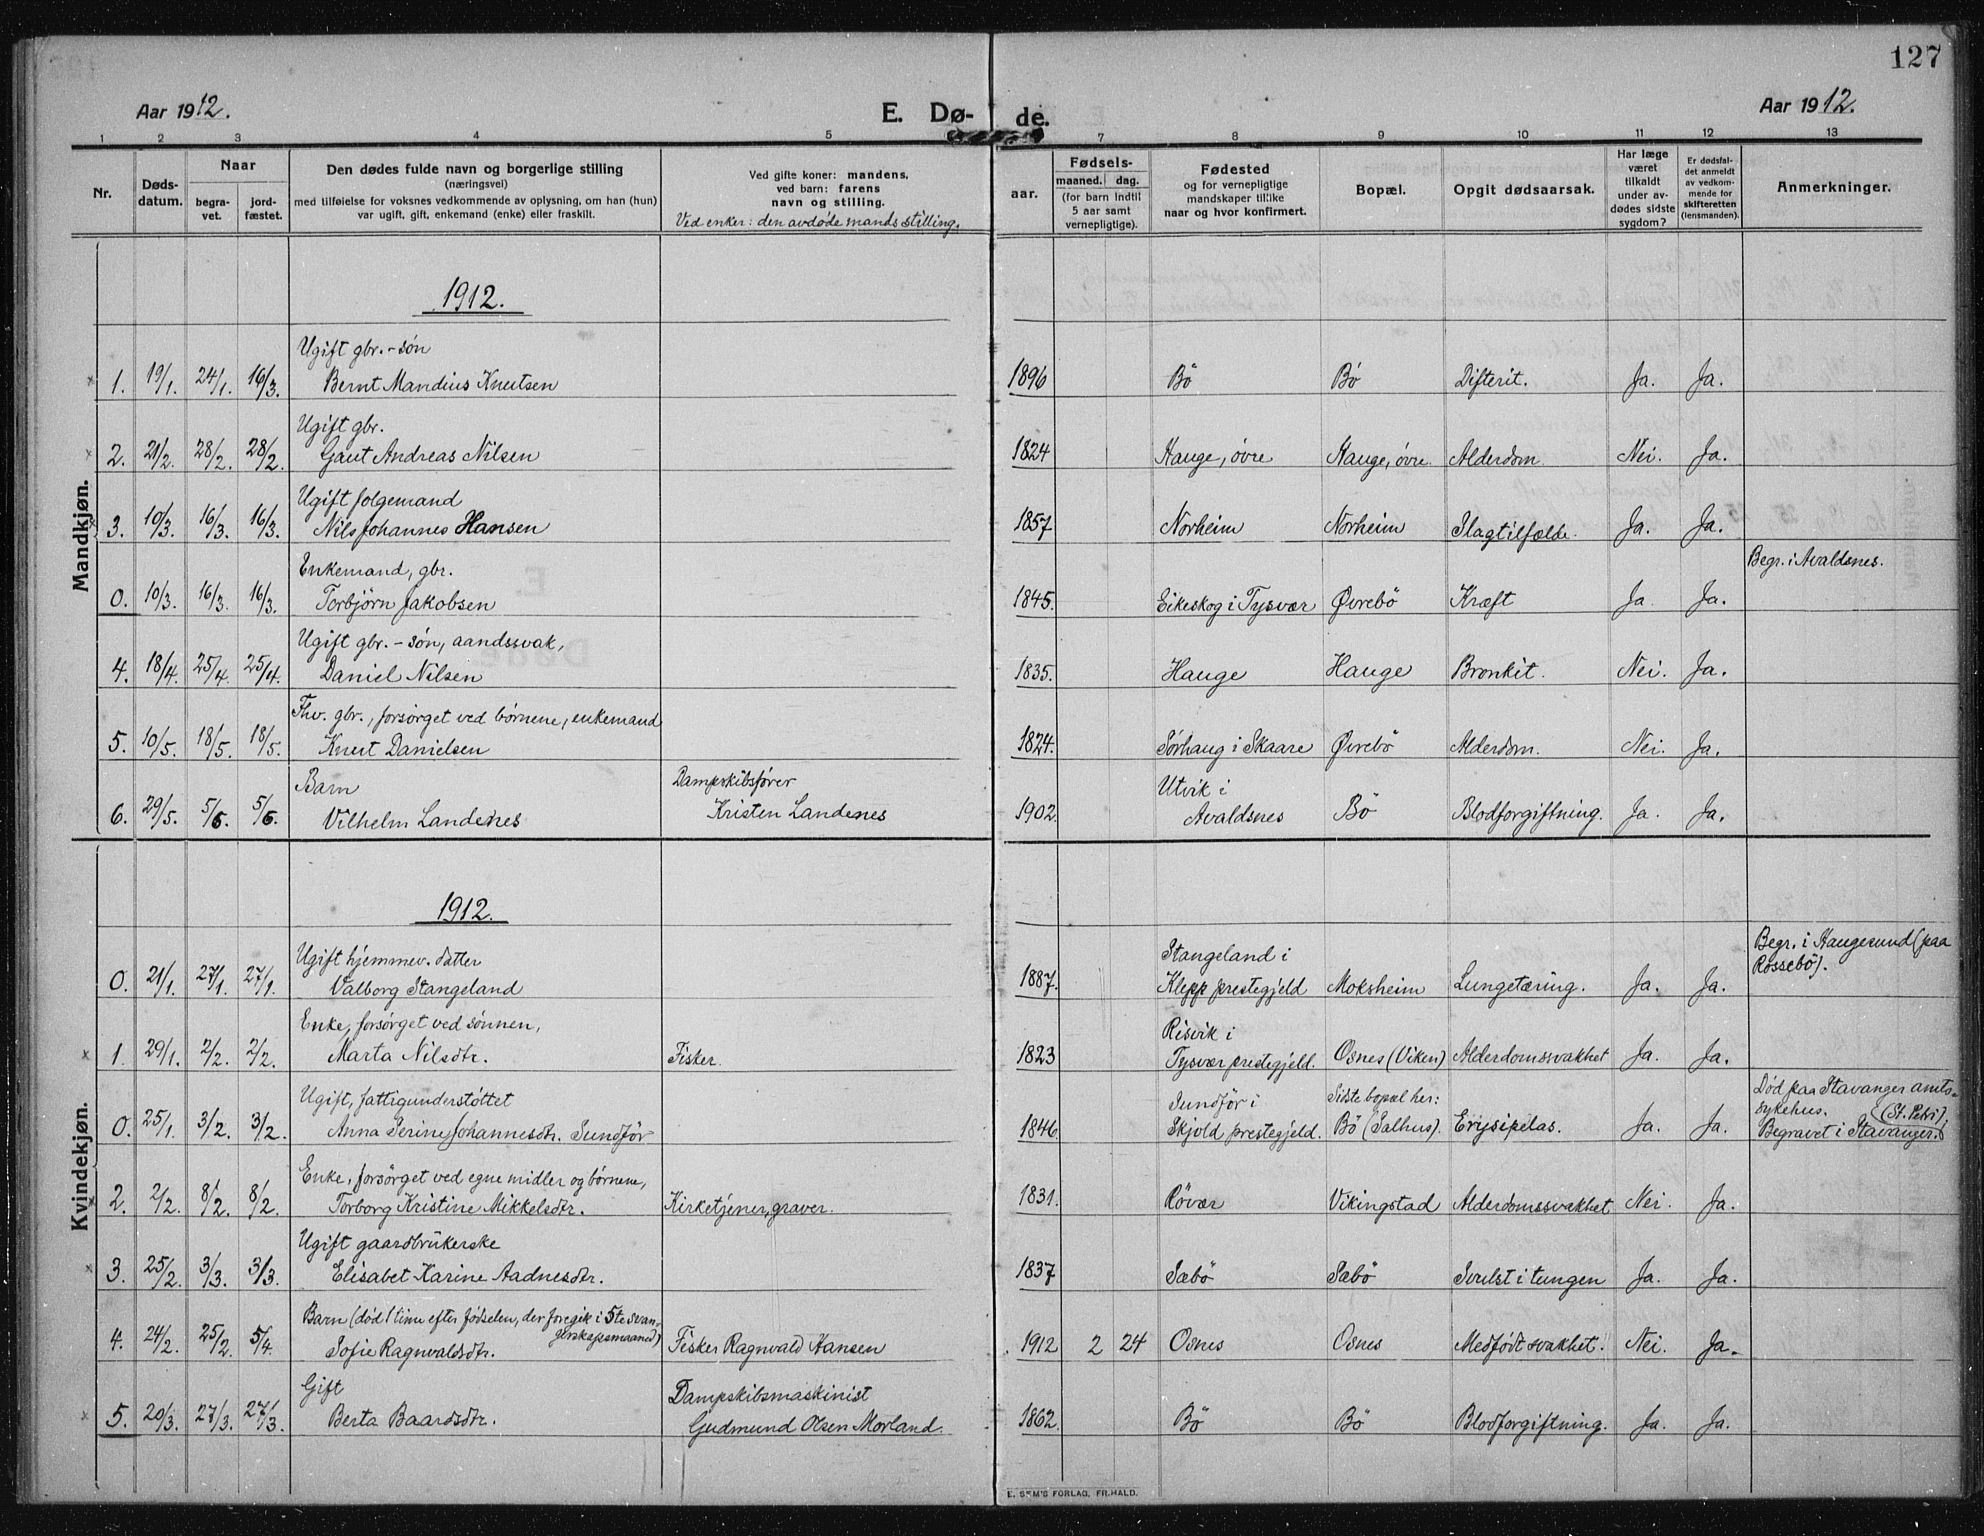 127
Aar 1912. E. Dø- de. Aar 1912.
1 2 3 4 5 7 8 9 10 11 12 13
Nr. Døds-datum. Naar begra-vet. jord-fæstet. Den dødes fulde navn og borgerlige stilling (næringsvei) med tilføielse for voksnes vedkommende av oplysning, om han (hun) var ugift, gift, enkemand (enke) eller fraskilt. Ved gifte koner: mandens, ved barn: farens navn og stilling. Ved enker: den avdøde mands stilling. aar. Fødsels- maaned. dag. (for barn indtil 5 aar samt vernepligtige). Fødested og for vernepligtige mandskaper tillike naar og hvor konfirmert. Bopæl. Opgit dødsaarsak. Har læge været tilkaldt under av-dødes sidste sygdom? Er dødsfal-det anmeldt av vedkom-mende for skifteretten (lensmanden). Anmerkninger.
Mandkjøn.
1912.
Ugift gbr.-søn
1. 19/1. 24/1. 16/3. Bernt Mandius Knutsen 1896 Bö Bö Difterit. Ja. Ja.
Ugift gbr.
2. 21/2. 28/2. 28/2. Gaut Andreas Nilsen 1824 Hauge, övre Hauge, övre. Alderdom. Nei. Ja.
Ugift folgemand
3. 10/3. 16/3. 16/3. Nils Johannes Hansen 1857 Norheim Norheim Slagtilfælde. Ja. Ja.
Enkemand, gbr. Begr. i Avaldsnes.
0. 10/3. 16/3. 16/3. Torbjörn Jakobsen 1845. Eikeskog i Tysvær Øvrebö Kræft Ja. Ja.
Ugift gbr.-søn, aandssvak,
4. 18/4. 25/4. 25/4. Daniel Nilsen 1835. Hauge Hauge Bronkit. Nei. Ja.
Fhv. gbr., forsörget ved börnene, enkemand
5. 10/5. 18/5. 18/5. Knut Danielsen 1824. Sörhaug i Skaare Øvrebö Alderdom. Nei. Ja.
Barn Dampskibsfører Utvik i
6. 29/5. 5/6. 5/6. Vilhelm Landenes Kristen Landenes 1902. Avaldsnes Bö Blodforgiftning. Ja. Ja.
Kvindekjøn.
1912.
Ugift hjemmev. datter Stangeland i Begr. i Haugesund (paa
Rossebö).
0. 21/1. 27/1. 27/1. Valborg Stangeland 1887. Klepp prestegjeld Moksheim Lungetæring. Ja. Ja.
Enke, forsörget ved sönnen, Risvik i
1. 29/1. 2/2. 2/2. Marta Nilsdtr. Fisker. 1823 Tysvær prestegjeld. Osnes (Viken) Alderdomssvakhet Ja. Ja.
Ugift, fattigunderstöttet Sundför i Sidste bopæl her: Død paa Stavanger amts-
sykehus. (St. Petri),
0. 25/1. 3/2. 3/2. Anna Serine Johannesdtr. Sundför 1846. Skjold prestegjeld. Bö (Salhus). Erysipelas. Ja. Ja. Begravet i Stavanger.
Enke, forsörget ved egne midler og börnene,
2. 2/2. 8/2. 8/2. Torborg Kristine Mikkelsdtr. Kirketjener, graver. 1831. Rövær Vikingstad Alderdomssvakhet Nei. Ja.
Ugift gaardbrukerske
3. 25/2. 3/3. 3/3. Elisabet Karine Aadnesdtr. 1837 Sæbö Sæbö Svulst i tungen Ja. Ja.
Barn (død 1 time efter fødselen, der foregik i 5te svan-
gerskapsmaaned)
4. 24/2. 25/2. 5/4. Sofie Ragnvaldsdtr. Fisker Ragnvald Hansen 1912 2 24 Osnes Osnes Medfødt svakhet. Nei. Ja.
Gift Dampskibsmaskinist
5. 20/3. 27/3. 27/3. Berta Baardsdtr. Gudmund Olsen Morland. 1862. Bö Bö Blodforgiftning. Ja. Ja.
E. SEM'S FORLAG, FR.HALD.